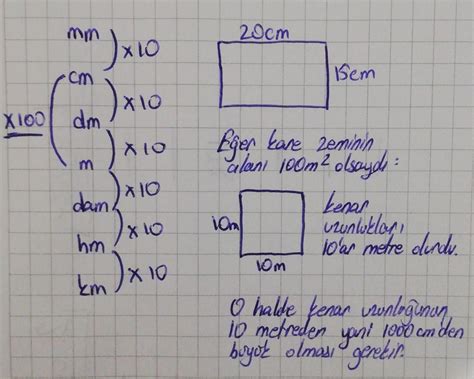 mm
x10
cm
x10
dm
x100
x10
m
x10
dam
x10
hm
x10
km
20cm
15cm
Eğer kare zeminin
alanı 100m² olsaydı:
10m
10m
kenar
uzunlukları
10'ar metre olurdu.
O halde kenar uzunluğunun
10 metreden yani 1000 cm den
büyük olması gerekir.